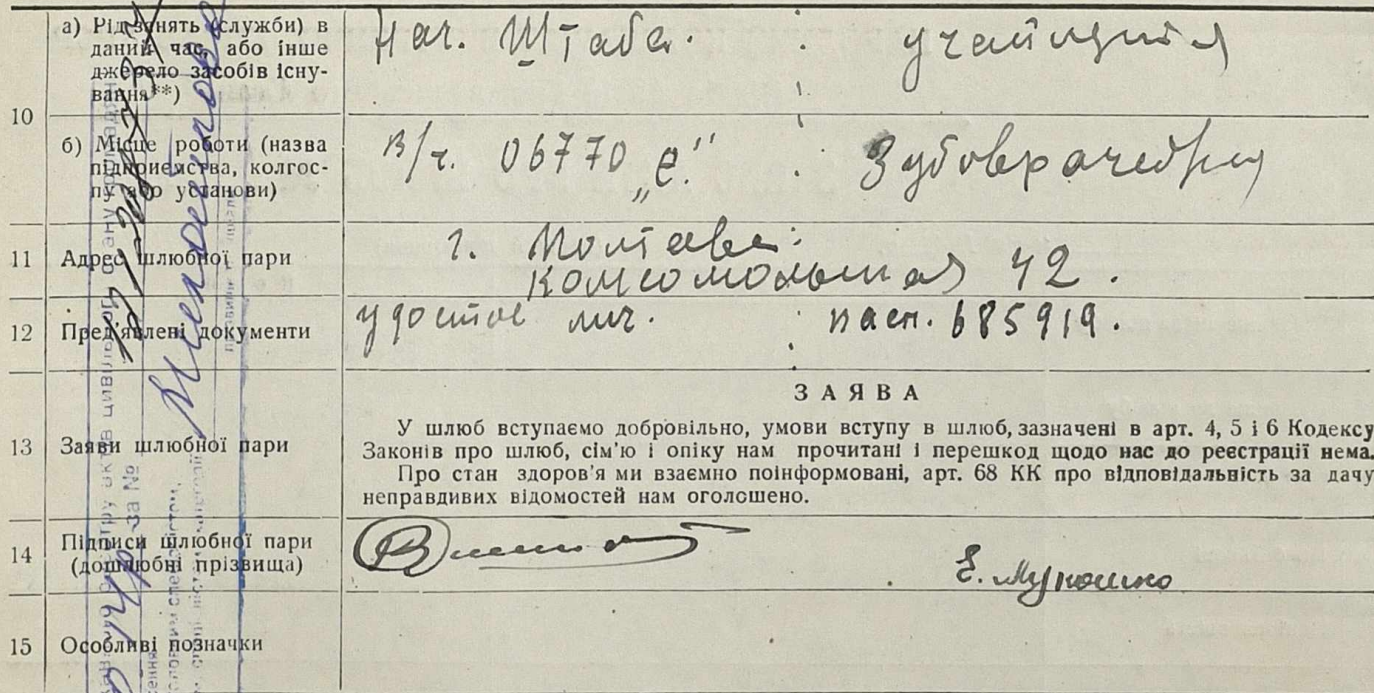 10
а) Рід занять (служби) в
даний час, або інше
джерело засобів існу-
вання**)
Нач. Штаба.
учащийся
б) Місце роботи (назва
підприємства, колгос-
пу або установи)
В/ч. 06770 „е"
Зубоврачебн
11
Адрес шлюбної пари
г. Полтава
Комсомольская 42.
12
Пред'явлені документи
удостов лич.
пасп. 685919.
13
Заяви шлюбної пари
ЗАЯВА
У шлюб вступаємо добровільно, умови вступу в шлюб, зазначені в арт. 4, 5 і 6 Кодексу
Законів про шлюб, сім'ю і опіку нам прочитані і перешкод щодо нас до реєстрації нема.
Про стан здоров'я ми взаємно поінформовані, арт. 68 КК про відповідальність за дачу
неправдивих відомостей нам оголошено.
14
Підписи шлюбної пари
(дошлюбні прізвища)
Е.
15
Особливі позначки
за №